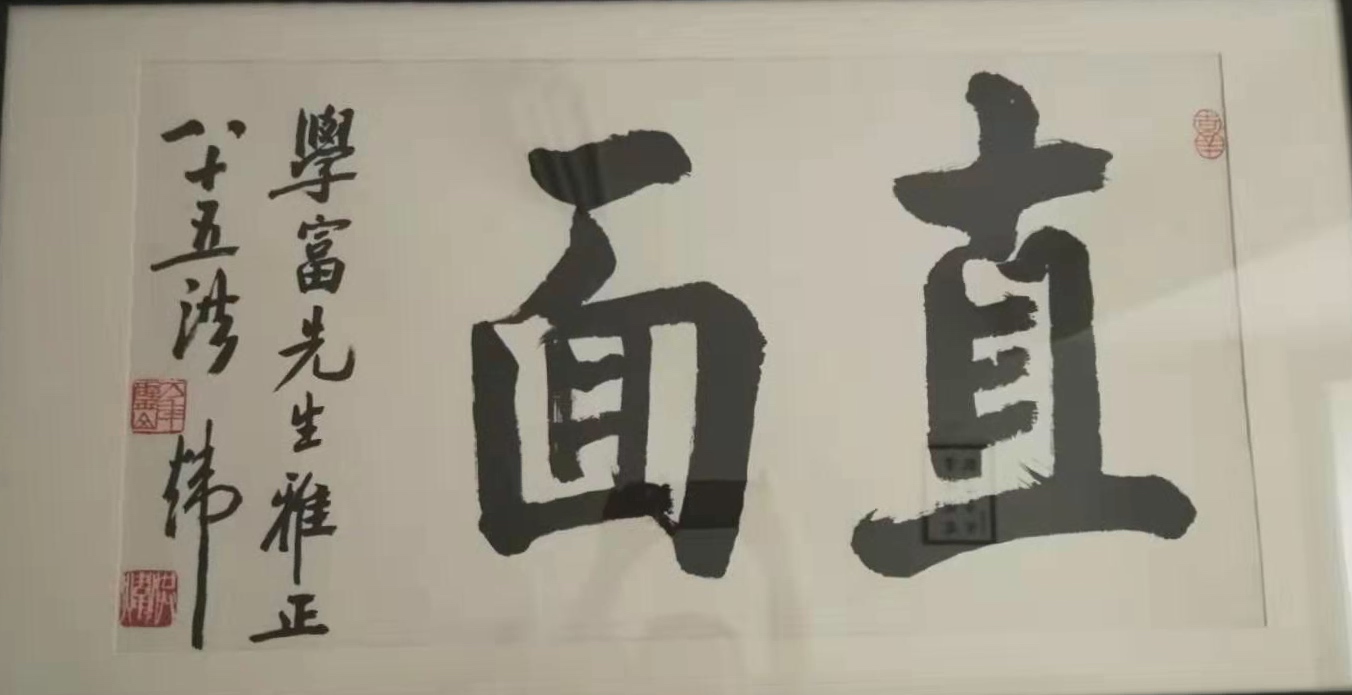 直面
學富先生雅正
八十五洪煒